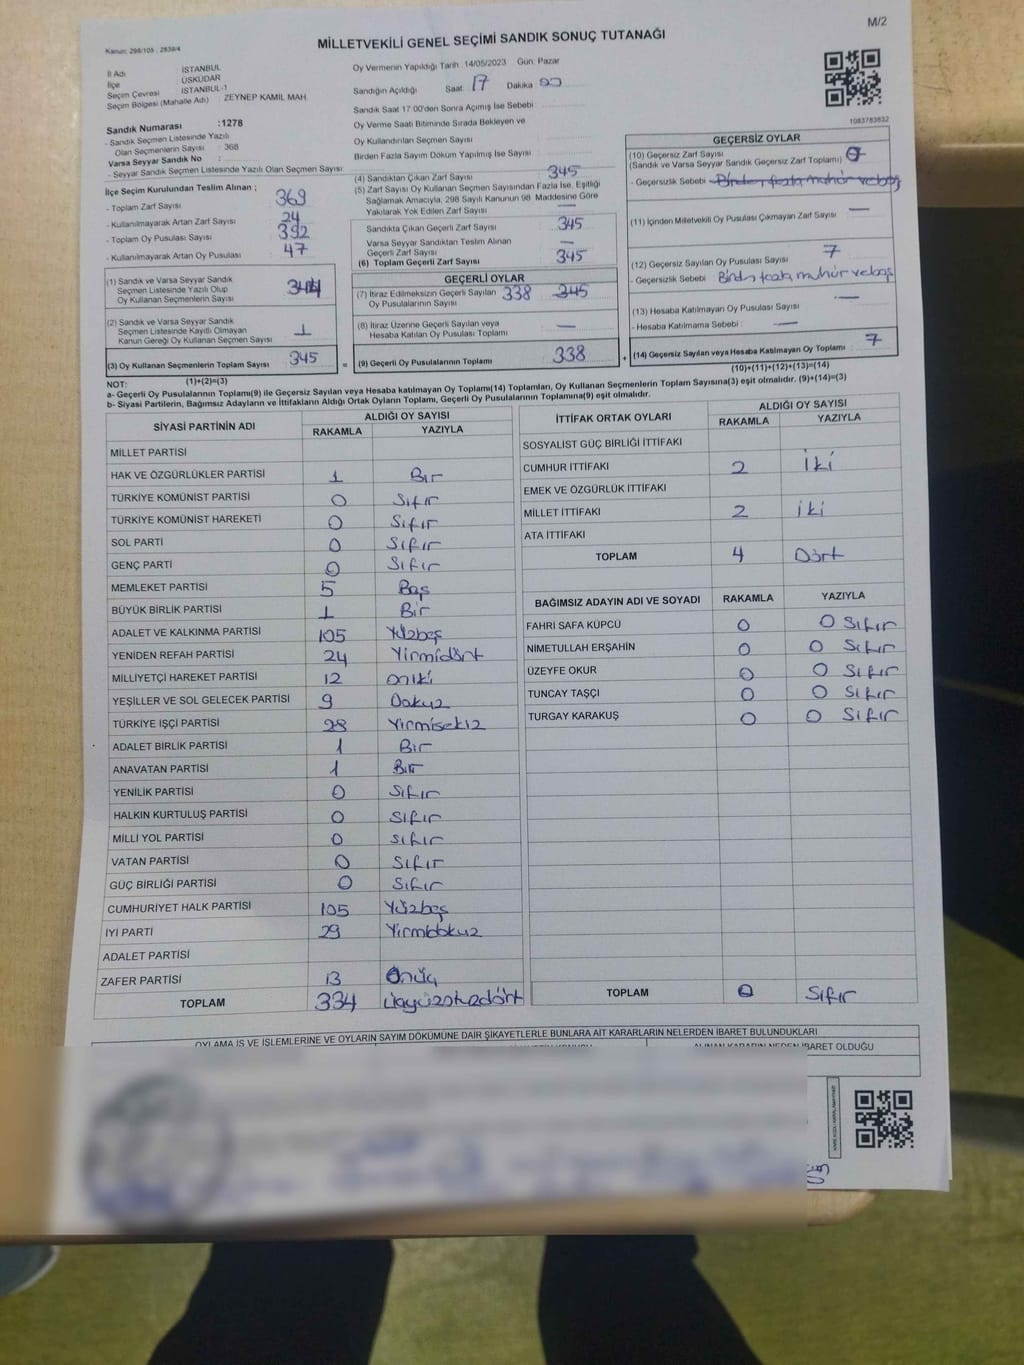 M/2
Kanun: 298/105 , 2839/4
MİLLETVEKİLİ GENEL SEÇİMİ SANDIK SONUÇ TUTANAĞI
İl Adı : İSTANBUL
İlçe : ÜSKÜDAR
Seçim Çevresi : İSTANBUL-1
Seçim Bölgesi (Mahalle Adı) : ZEYNEP KAMİL MAH.
Sandık Numarası : 1278
- Sandık Seçmen Listesinde Yazılı
Olan Seçmenlerin Sayısı : 368
Varsa Seyyar Sandık No :
- Seyyar Sandık Seçmen Listesinde Yazılı Olan Seçmen Sayısı:
İlçe Seçim Kurulundan Teslim Alınan ;
- Toplam Zarf Sayısı 369
- Kullanılmayarak Artan Zarf Sayısı 24
- Toplam Oy Pusulası Sayısı 392
- Kullanılmayarak Artan Oy Pusulası 47
(1) Sandık ve Varsa Seyyar Sandık
Seçmen Listesinde Yazılı Olup
Oy Kullanan Seçmenlerin Sayısı 344
(2) Sandık ve Varsa Seyyar Sandık
Seçmen Listesinde Kayıtlı Olmayan
Kanun Gereği Oy Kullanan Seçmen Sayısı 1
(3) Oy Kullanan Seçmenlerin Toplam Sayısı 345
(1)+(2)=(3)
Oy Vermenin Yapıldığı Tarih 14/05/2023 Gün: Pazar
Sandığın Açıldığı Saat: 17 Dakika 00
Sandık Saat 17:00'den Sonra Açımış İse Sebebi
Oy Verme Saati Bitiminde Sırada Bekleyen ve
Oy Kullandırılan Seçmen Sayısı
Birden Fazla Sayım Döküm Yapılmış İse Sayısı :
(4) Sandıktan Çıkan Zarf Sayısı 345
(5) Zarf Sayısı Oy Kullanan Seçmen Sayısından Fazla İse, Eşitliği
Sağlamak Amacıyla, 298 Sayılı Kanunun 98 Maddesine Göre
Yakılarak Yok Edilen Zarf Sayısı —
Sandıkta Çıkan Geçerli Zarf Sayısı 345
Varsa Seyyar Sandıktan Teslim Alınan
Geçerli Zarf Sayısı —
(6) Toplam Geçerli Zarf Sayısı 345
GEÇERLİ OYLAR
(7) İtiraz Edilmeksizin Geçerli Sayılan 338 345
Oy Pusulalarının Sayısı
(8) İtiraz Üzerine Geçerli Sayılan veya
Hesaba Katılan Oy Pusulası Toplamı —
= (9) Geçerli Oy Pusulalarının Toplamı 338
1083783832
GEÇERSİZ OYLAR
(10) Geçersiz Zarf Sayısı
(Sandık ve Varsa Seyyar Sandık Geçersiz Zarf Toplamı)
- Geçersizlik Sebebi Birden fazla mühür ve boş
(11) İçinden Milletvekili Oy Pusulası Çıkmayan Zarf Sayısı —
(12) Geçersiz Sayılan Oy Pusulası Sayısı 7
- Geçersizlik Sebebi : Birden fazla mühür ve boş
(13) Hesaba Katılmayan Oy Pusulası Sayısı —
- Hesaba Katılmama Sebebi : —
+ (14) Geçersiz Sayılan veya Hesaba Katılmayan Oy Toplamı 7
(10)+(11)+(12)+(13)=(14)
NOT:
a- Geçerli Oy Pusulalarının Toplamı(9) ile Geçersiz Sayılan veya Hesaba katılmayan Oy Toplamı(14) Toplamları, Oy Kullanan Seçmenlerin Toplam Sayısına(3) eşit olmalıdır. (9)+(14)=(3)
b- Siyasi Partilerin, Bağımsız Adayların ve İttifakların Aldığı Ortak Oyların Toplamı, Geçerli Oy Pusulalarının Toplamına(9) eşit olmalıdır.
SİYASİ PARTİNİN ADI ALDIĞI OY SAYISI
RAKAMLA YAZIYLA
MİLLET PARTİSİ
HAK VE ÖZGÜRLÜKLER PARTİSİ 1 Bir
TÜRKİYE KOMÜNİST PARTİSİ 0 Sıfır
TÜRKİYE KOMÜNİST HAREKETİ 0 Sıfır
SOL PARTİ 0 Sıfır
GENÇ PARTİ 0 Sıfır
MEMLEKET PARTİSİ 5 Beş
BÜYÜK BİRLİK PARTİSİ 1 Bir
ADALET VE KALKINMA PARTİSİ 105 Yüzbeş
YENİDEN REFAH PARTİSİ 24 Yirmidört
MİLLİYETÇİ HAREKET PARTİSİ 12 oniki
YEŞİLLER VE SOL GELECEK PARTİSİ 9 Dokuz
TÜRKİYE İŞÇİ PARTİSİ 28 Yirmisekiz
ADALET BİRLİK PARTİSİ 1 Bir
ANAVATAN PARTİSİ 1 Bir
YENİLİK PARTİSİ 0 Sıfır
HALKIN KURTULUŞ PARTİSİ 0 Sıfır
MİLLİ YOL PARTİSİ 0 Sıfır
VATAN PARTİSİ 0 Sıfır
GÜÇ BİRLİĞİ PARTİSİ 0 Sıfır
CUMHURİYET HALK PARTİSİ 105 Yüzbeş
İYİ PARTİ 29 Yirmidokuz
ADALET PARTİSİ
ZAFER PARTİSİ 13 Onüç
TOPLAM 334 üçyüzotuzdört
İTTİFAK ORTAK OYLARI ALDIĞI OY SAYISI
RAKAMLA YAZIYLA
SOSYALİST GÜÇ BİRLİĞİ İTTİFAKI
CUMHUR İTTİFAKI 2 İki
EMEK VE ÖZGÜRLÜK İTTİFAKI
MİLLET İTTİFAKI 2 İki
ATA İTTİFAKI
TOPLAM 4 Dört
BAĞIMSIZ ADAYIN ADI VE SOYADI RAKAMLA YAZIYLA
FAHRİ SAFA KÜPCÜ 0 0 Sıfır
NİMETULLAH ERŞAHİN 0 0 Sıfır
ÜZEYFE OKUR 0 0 Sıfır
TUNCAY TAŞÇI 0 0 Sıfır
TURGAY KARAKUŞ 0 0 Sıfır
TOPLAM 0 Sıfır
OYLAMA İŞ VE İŞLEMLERİNE VE OYLARIN SAYIM DÖKÜMÜNE DAİR ŞİKAYETLERLE BUNLARA AİT KARARLARIN NELERDEN İBARET BULUNDUKLARI
ALINAN KARARIN NEDEN İBARET OLDUĞU